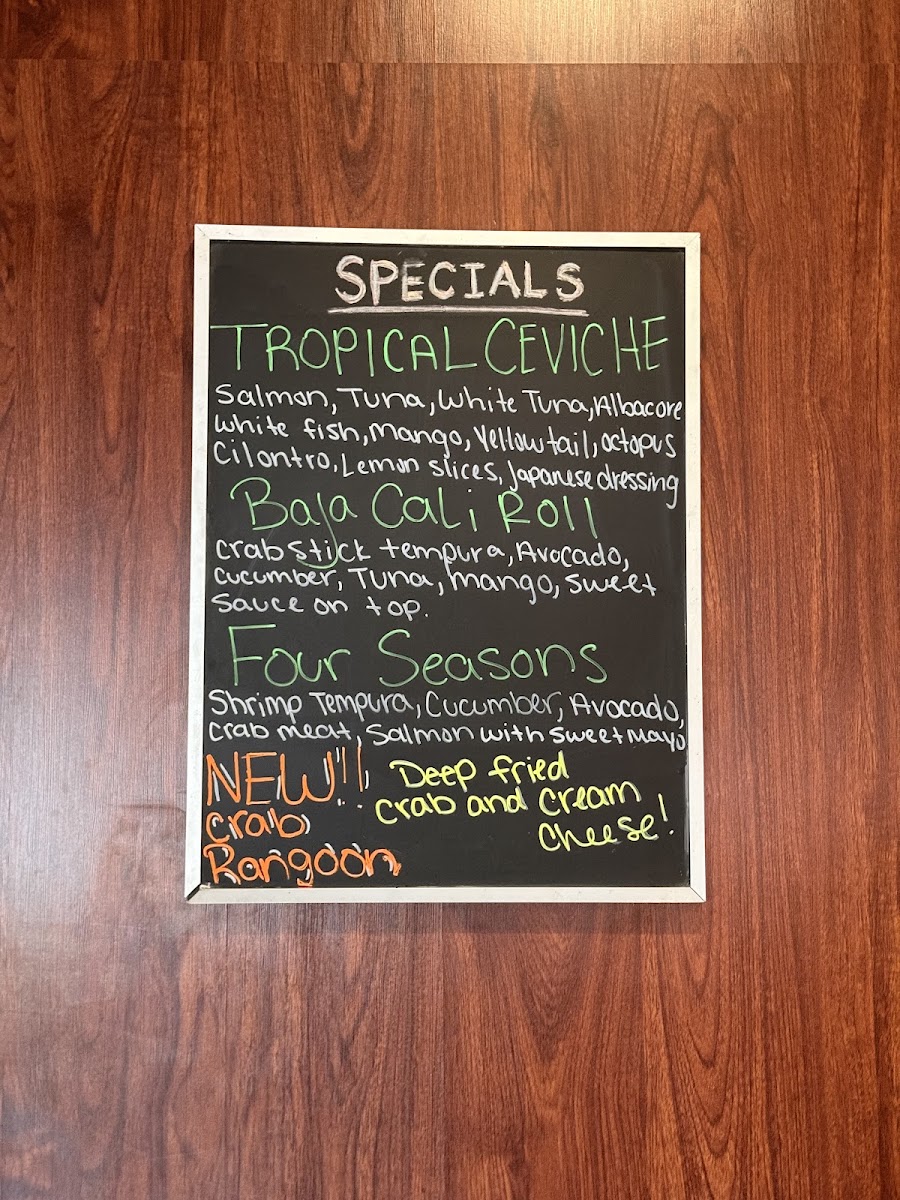 SPECIALS
TROPICAL CEVICHE
Salmon, Tuna, White Tuna, Albacore
White fish, Mango, Yellowtail, octopus
Cilontro, Lemon slices, Japanese dressing
Baja Cali Roll
crabstick tempura, Avocado,
cucumber, Tuna, mango, sweet
sauce on top.
Four Seasons
Shrimp Tempura, Cucumber, Avocado,
crab meat, Salmon with sweet mayo
NEW!! Deep fried
crab and cream
cheese!
crab
Rangoon